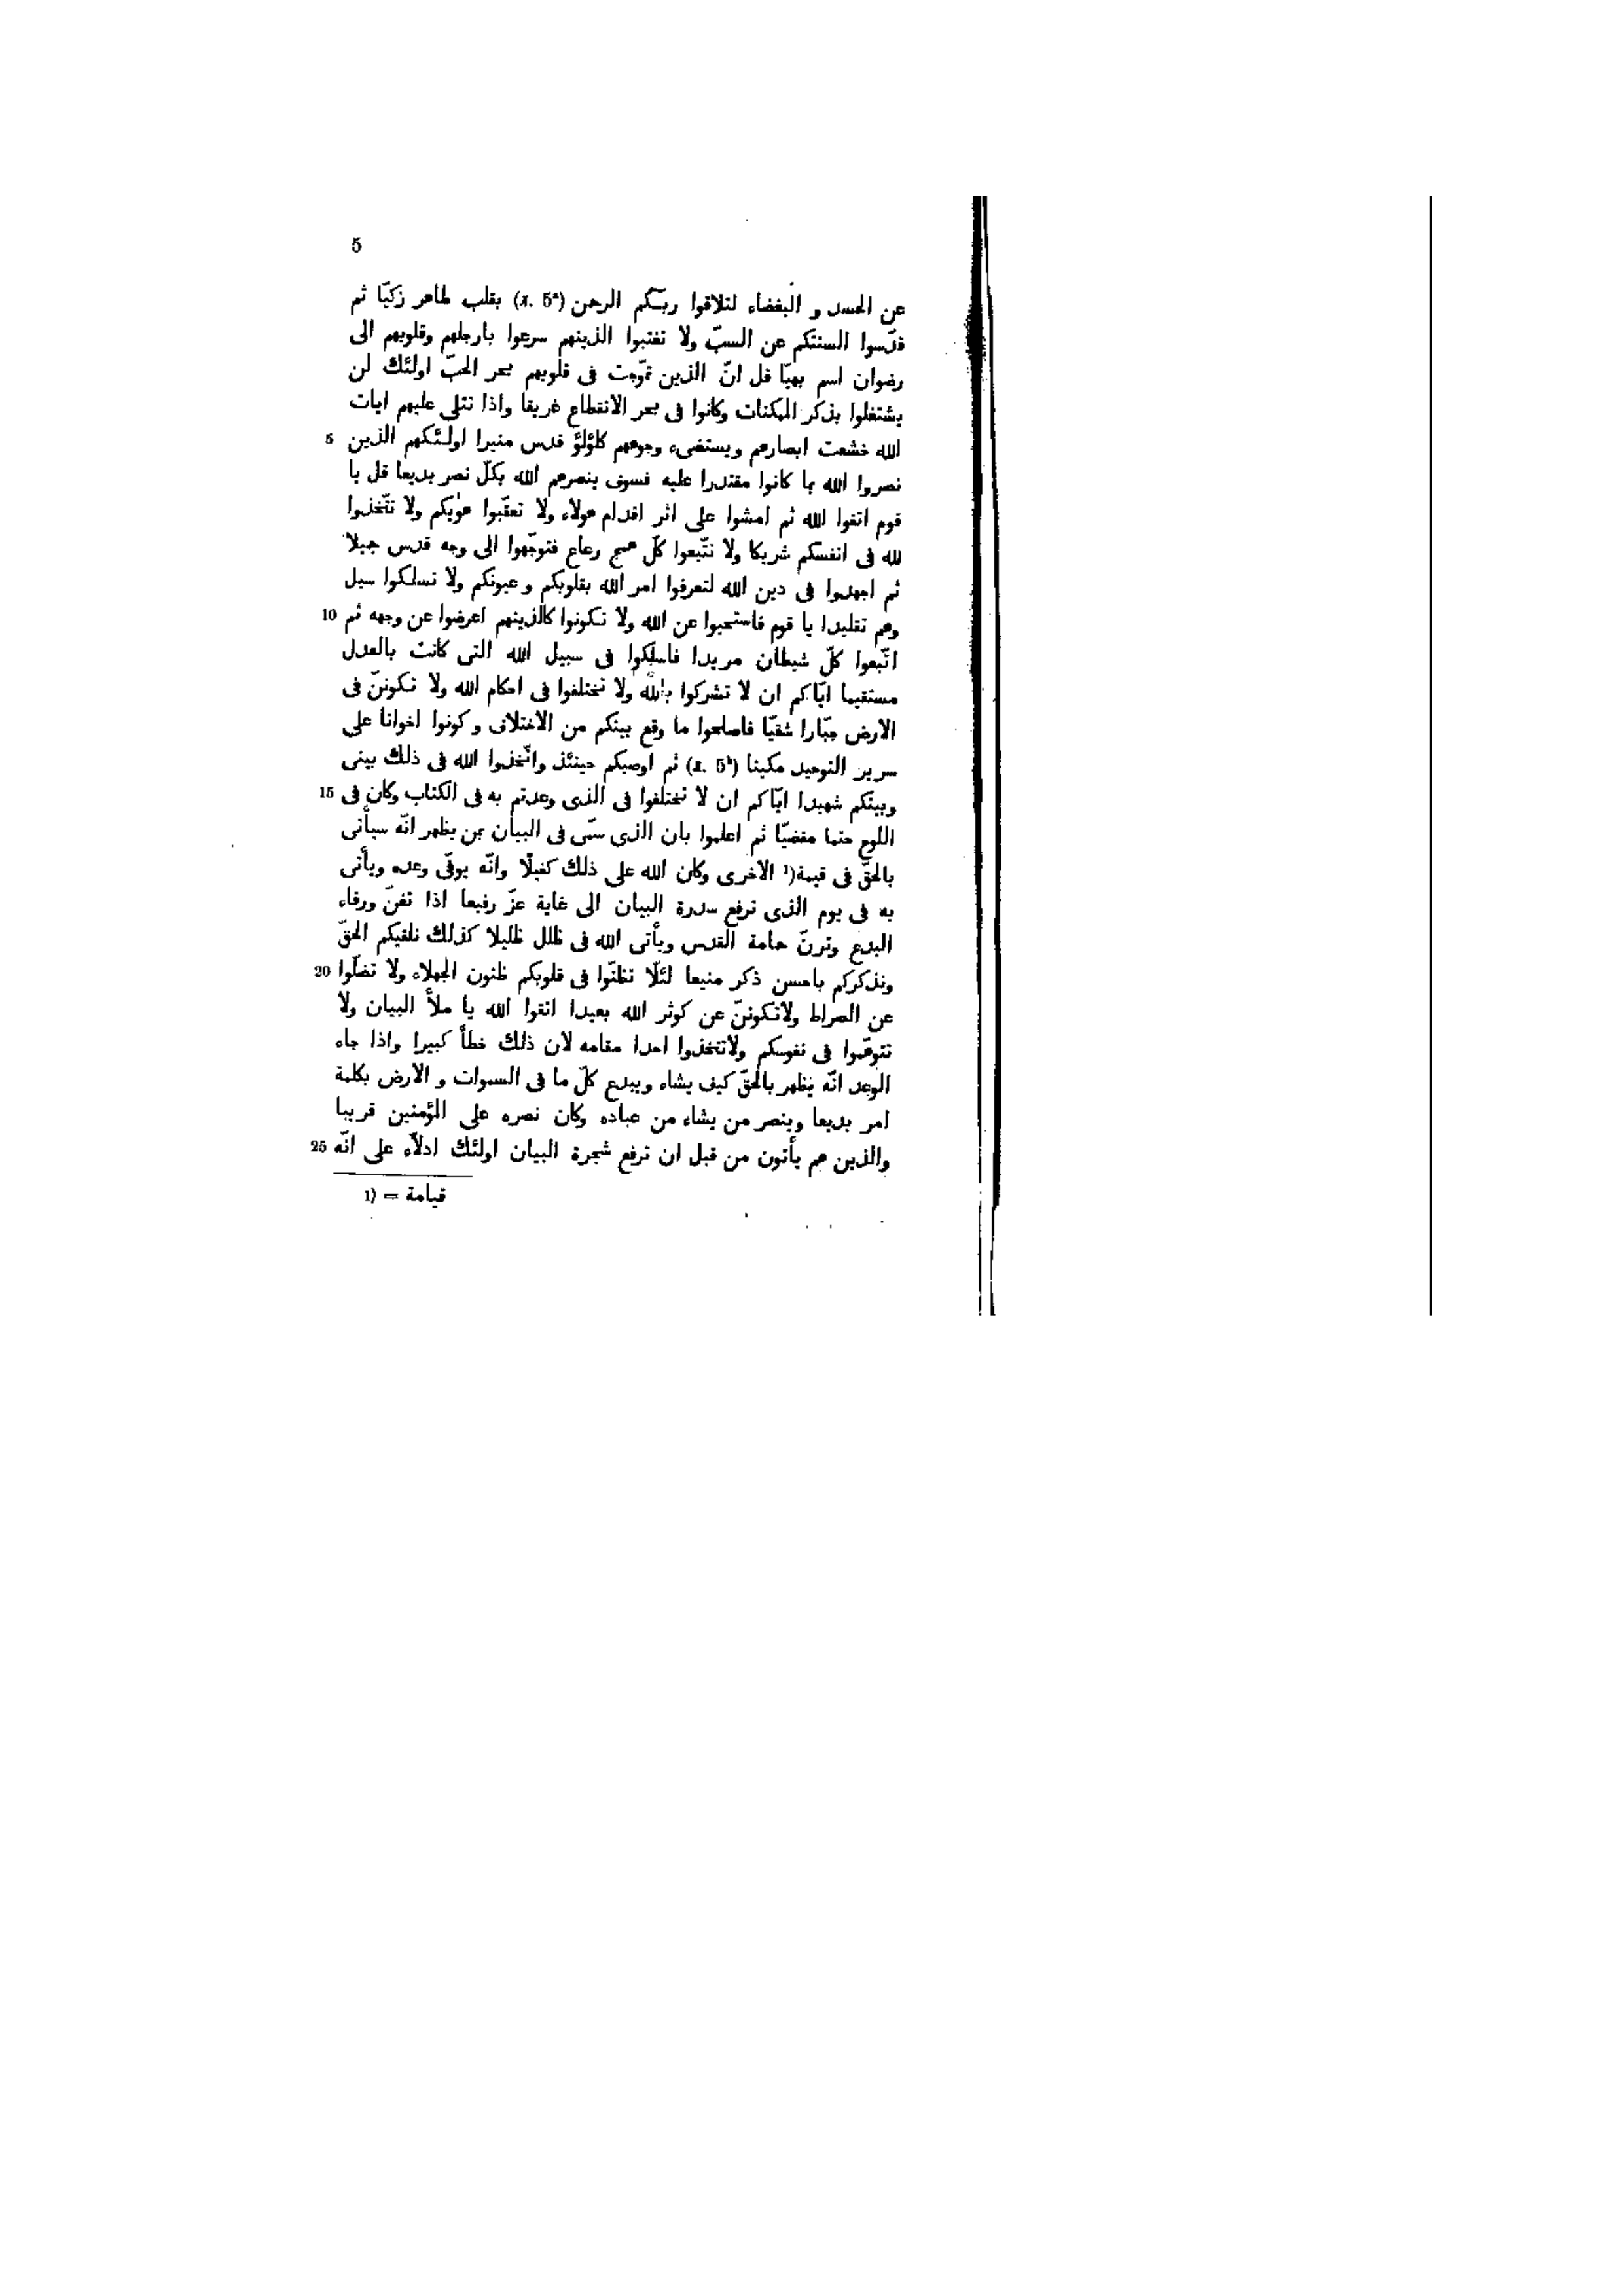 5
عن الحسد و البغضاء لتلاقوا ربّكم الرحمن (л. 5ᵃ) بقلب طاهر زكيّا ثم
قدّسوا السنتكم عن السبّ ولا تغتبوا الذينهم سرعوا بارجلهم وقلوبهم الى
رضوان اسم بهيّا قل انّ الذين تموّجت فى قلوبهم بحر الحبّ اولئك لن
يشتغلوا بذكر الممكنات وكانوا فى بحر الانقطاع غريقا واذا تتلى عليهم ايات
الله خشعت ابصارهم ويستضىء وجوههم كلؤلؤ قدس منيرا اولئكهم الذين 5
نصروا الله بما كانوا مقتدرا عليه فسوف ينصرهم الله بكلّ نصر بديعا قل يا
قوم اتقوا الله ثم امشوا على اثر اقدام هولاء ولا تعقّبوا هويكم ولا تتّخذوا
لله فى انفسكم شريكا ولا تتّبعوا كلّ همج رعاع فتوجّهوا الى وجه قدس جميلا
ثم اجهدوا فى دين الله لتعرفوا امر الله بقلوبكم وعيونكم ولا تسلكوا سبل
وهم تقليدا يا قوم فاستحيوا عن الله ولا تكونوا كالذينهم اعرضوا عن وجهه ثم 10
اتّبعوا كلّ شيطان مريدا فاسلكوا فى سبيل الله التى كانت بالعدل
مستقيما ايّاكم ان لا تشركوا بالله ولا تختلفوا فى احكام الله ولا تكوننّ فى
الارض جبّارا شقيّا فاصلحوا ما وقع بينكم من الاختلاف وكونوا اخوانا على
سرير التوحيد مكينا (л. 5ᵇ) ثم اوصيكم حينئذ واتّخذوا الله فى ذلك بينى
وبينكم شهيدا ايّاكم ان لا تختلفوا فى الذى وعدتم به فى الكتاب وكان فى 15
اللوح حتما مقضيّا ثم اعلموا بان الذى سمّى فى البيان بمن يظهر انّه سيأتى
بالحقّ فى قيمة(¹ الاخرى وكان الله على ذلك كفيلا وانّه يوفّى وعده ويأتى
به فى يوم الذى ترفع سدرة البيان الى غاية عزّ رفيعا اذا تغنّ ورقاء
البدع وترنّ حمامة القدس ويأتى الله فى ظلل ظليلا كذلك نلقيكم الحقّ
ونذكركم باحسن ذكر منيعا لئلّا تظنّوا فى قلوبكم ظنون الجهلاء ولا تضلّوا 20
عن الصراط ولاتكوننّ عن كوثر الله بعيدا اتقوا الله يا ملأ البيان ولا
تتوهّموا فى نفوسكم ولاتتخذوا احدا مقامه لان ذلك خطأ كبيرا واذا جاء
الوعد انّه يظهر بالحقّ كيف يشاء ويبدع كلّ ما فى السموات و الارض بكلمة
امر بديعا وينصر من يشاء من عباده وكان نصره على المؤمنين قريبا
والذين هم يأتون من قبل ان ترفع شجرة البيان اولئك ادلّاء على انّه 25
1) = قيامة